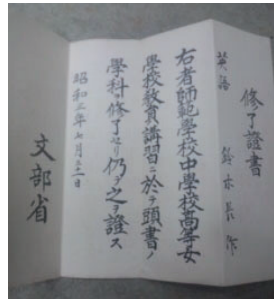 修了證書
英語 鈴木長作
右者師範學校中學校高等女
學校教員講習ニ於テ頭書ノ
學科ヲ修了セリ仍テ之ヲ證ス
昭和三年七月三十一日
文部省